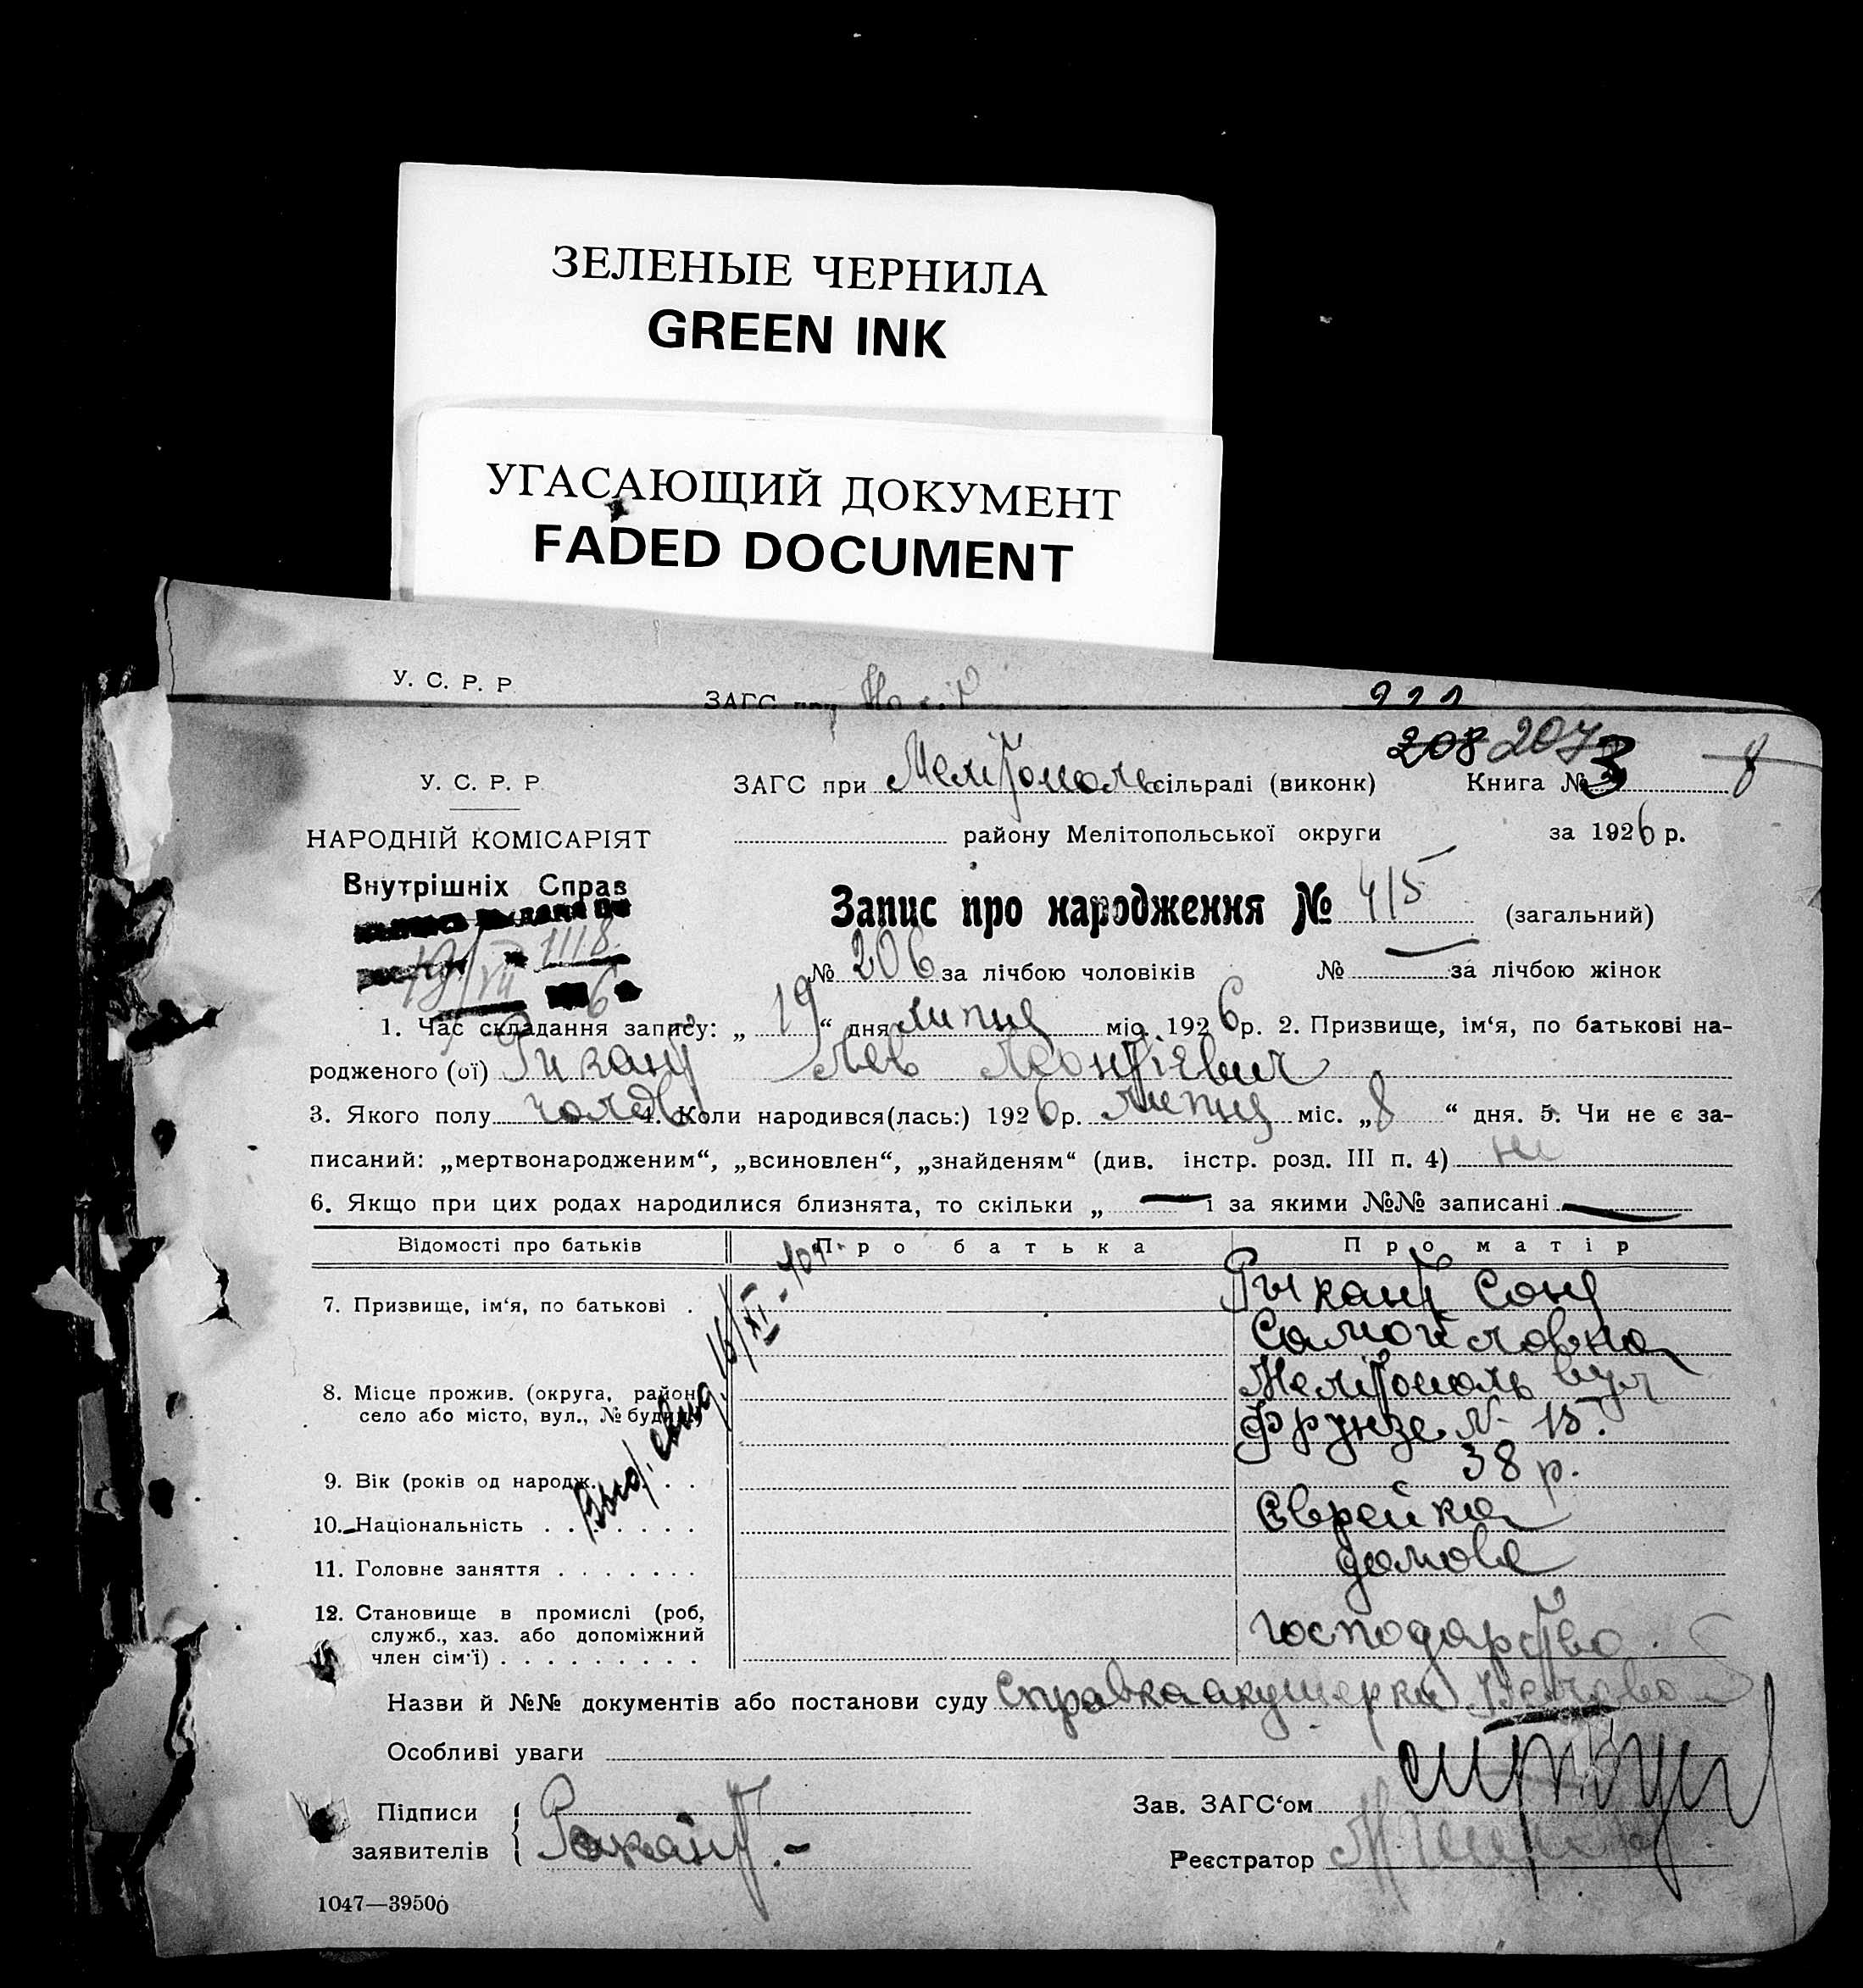 ЗЕЛЕНЫЕ ЧЕРНИЛА
GREEN INK
УГАСАЮЩИЙ ДОКУМЕНТ
FADED DOCUMENT
У. С. Р. Р
ЗАГС при
208 207
8
У. С. Р. Р. ЗАГС при Мелітополь сільраді (виконк) Книга № 3
НАРОДНІЙ КОМІСАРІЯТ району Мелітопольської округи за 1926 р.
Внутрішніх Справ
Запис про народження № 415 (загальний)
1118
19/VII 6
№ 206 за лічбою чоловіків № — за лічбою жінок
1. Час складання запису: „ 19 “ дня липня міс. 1926 р. 2. Призвище, ім‘я, по батькові на-
родженого (ої) Рикант Лев Леонтієвич
3. Якого полу чолов 4. Коли народився(лась:) 1926 р. липня міс. „ 8 “ дня. 5. Чи не є за-
писаний: „мертвонародженим“, „всиновлен“, „знайденям“ (див. інстр. розд. III п. 4) ні
6. Якщо при цих родах народилися близнята, то скільки „ — і за якими №№ записані —
Відомості про батьків Про батька Про матір
7. Призвище, ім‘я, по батькові . Рыкант Соня
Самойловна
8. Місце прожив. (округа, район, Мелітополь вул
село або місто, вул., № будин. Фрунзе № 15.
9. Вік (років од народж. . . . 38 р.
10. Національність . . . . . . . Єврейка
11. Головне заняття . . . . . . . домове
12. Становище в промислі (роб, господарство.
служб., хаз. або допоміжний
член сім‘ї) . . . . . . . . .
16/XI
Назви й №№ документів або постанови суду справка акушерки
Особливі уваги
Підписи
заявителів Рикант.-
Зав. ЗАГС‘ом
Реєстратор
1047—39500